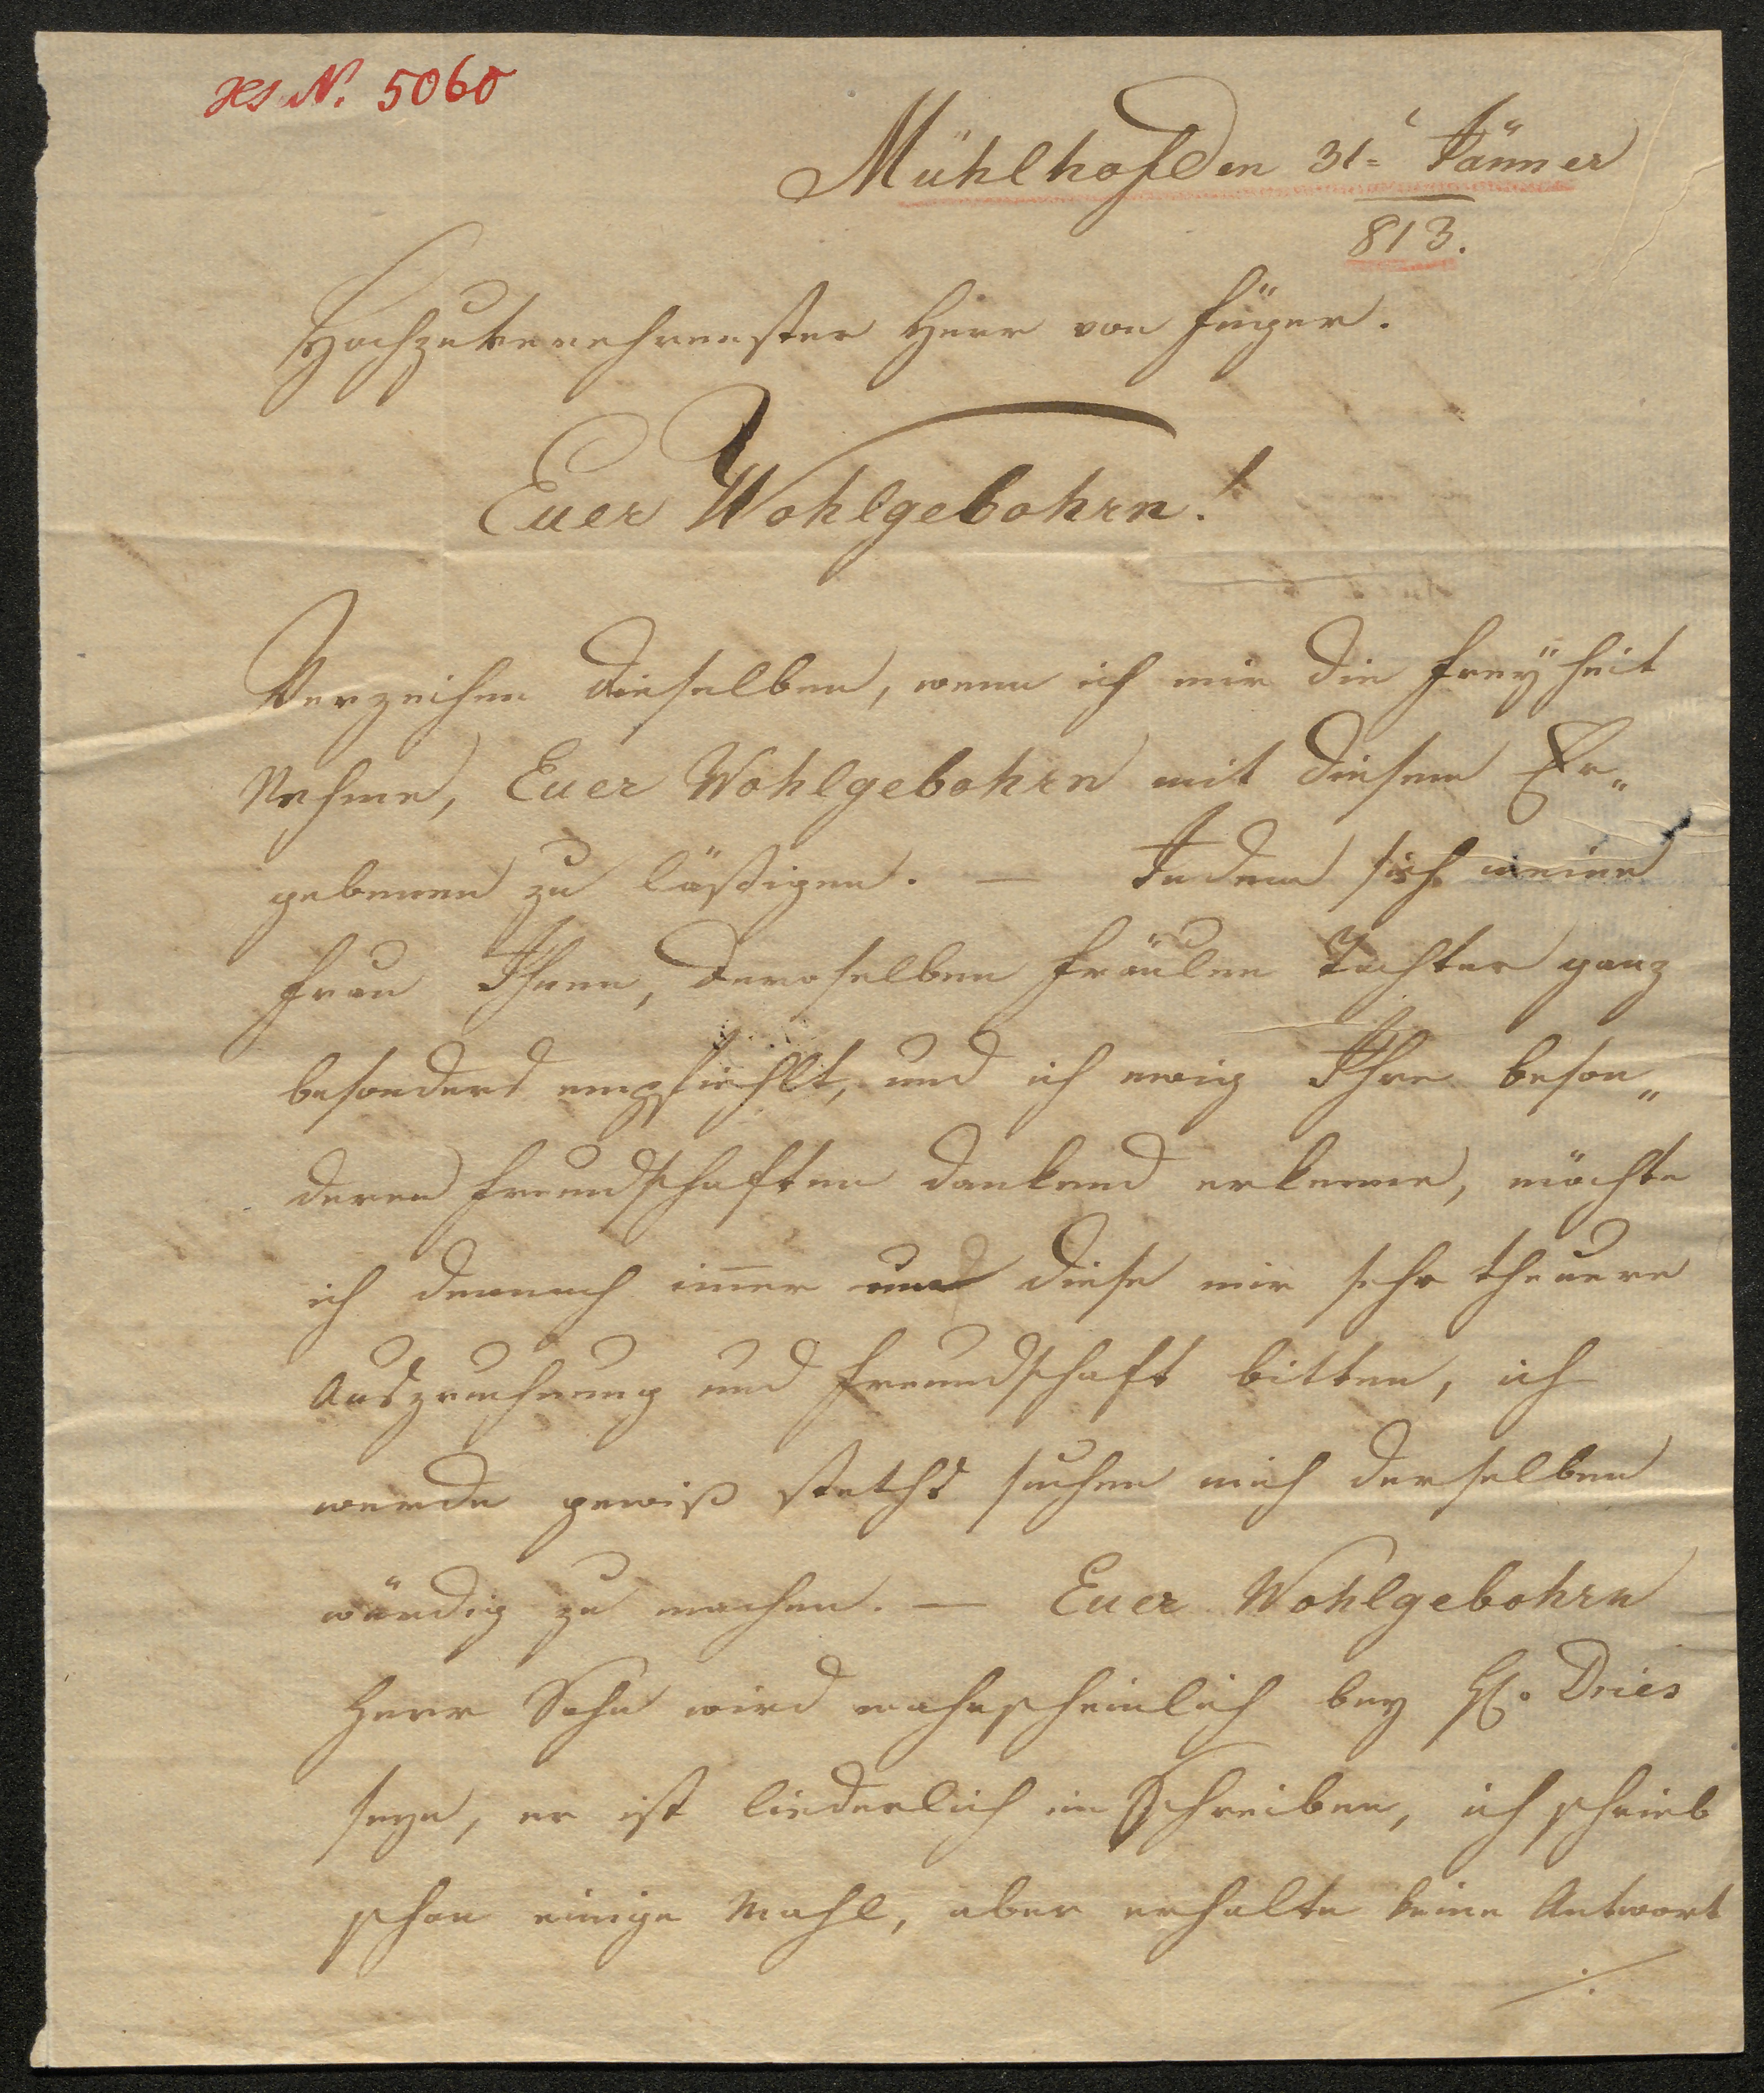 N. 5060
Mühlhof den 31t Jänner
813.
Hochzuverehrenster Herr von Füger.
Euer Wohlgebohrn!
Verzeihen dieselben, wenn ich mir die Freÿheit
Nehme, Euer Wohlgebohrn mit diesem Er„
gebenen zu läßtigen. — Indem sich meine
Frau Ihnen, deroselben Fräulen Tochter ganz
besonders empfiehlt, und ich ewig Ihre beson„
deren Freundschaften dankend erkenne, möchte
ich dennoch imer um diese mir sehr theuere
Auszeichnung und Freundschaft bitten, ich
werde gewiß steths suchen mich derselben
würdig zu machen. — Euer Wohlgebohrn
Herr Sohn wird wahrscheinlich bey H. Dries
seyn, er ist liederlich im Schreiben, ich schrieb
schon einige Mahl, aber erhalte keine Antwort
./.